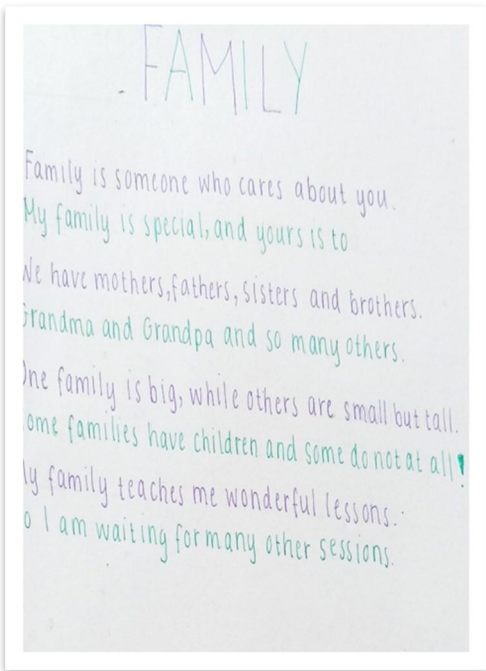 FAMILY
Family is someone who cares about you.
My family is special, and yours is to
We have mothers, fathers, sisters and brothers.
Grandma and Grandpa and so many others.
One family is big, while others are small but tall.
ome families have children and some do not at all!
My family teaches me wonderful lessons.
o I am waiting for many other sessions.